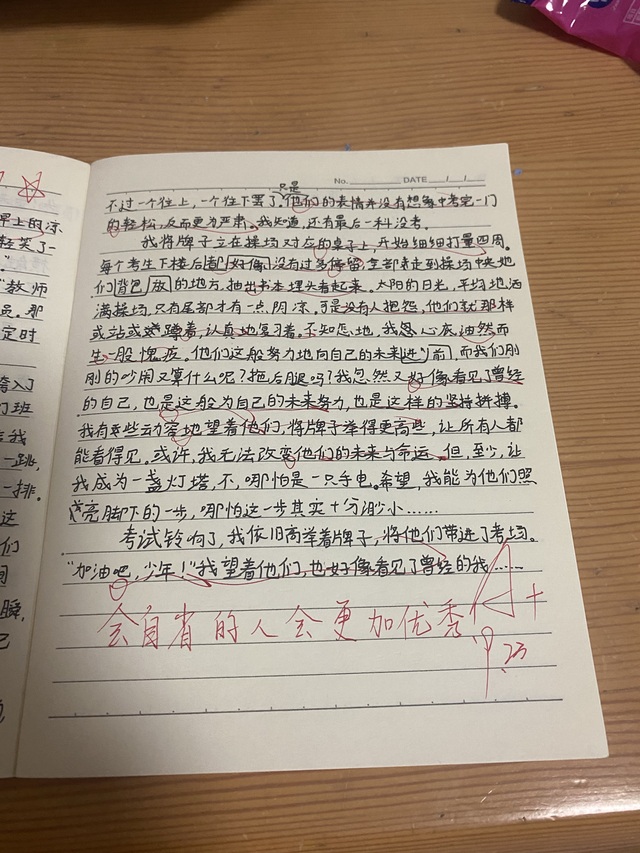 早上的凉
轻笑了一
"教师
员。那
定时
跨入了
班
给我
一跳,
一排。
这
们
间
瞬,
己
No. DATE / /
只是
不过一个往上,一个往下罢了,他们的表情并没有想每中考完一门
的轻松,反而更为严肃。我知道,还有最后一科没考。
我将牌子立在操场对应的桌子上,开始细细打量四周。
每个考生下楼后都好像没有过多停留,全部奔走到操场中央他
们背包放的地方,抽出书本埋头看起来。太阳的日光,平均地洒
满操场,只有尾部才有一点阴凉。可是没有人抱怨,他们就那样
或站或蹲着,认真地复习着。不知怎地,我忽心底油然而
生一股愧疚。他们这般努力地向自己的未来进"前",而我们刚
刚的吵闹又算什么呢?拖后腿吗?我忽然又好像看见了曾经
的自己,也是这般为自己的未来努力,也是这样的坚持拼搏。
我有些动容地望着他们,将牌子举得更高些,让所有人都
能看得见。或许,我无法改变他们的未来与命运。但,至少,让
我成为一盏灯塔,不,哪怕是一只手电。希望,我能为他们照
亮脚下的一步,哪怕这一步其实十分渺小……
考试铃响了,我依旧高举着牌子,将他们带进了考场。
"加油吧,少年!"我望着他们,也好像看见了曾经的我……
会自省的人会更加优秀 A+
9.23